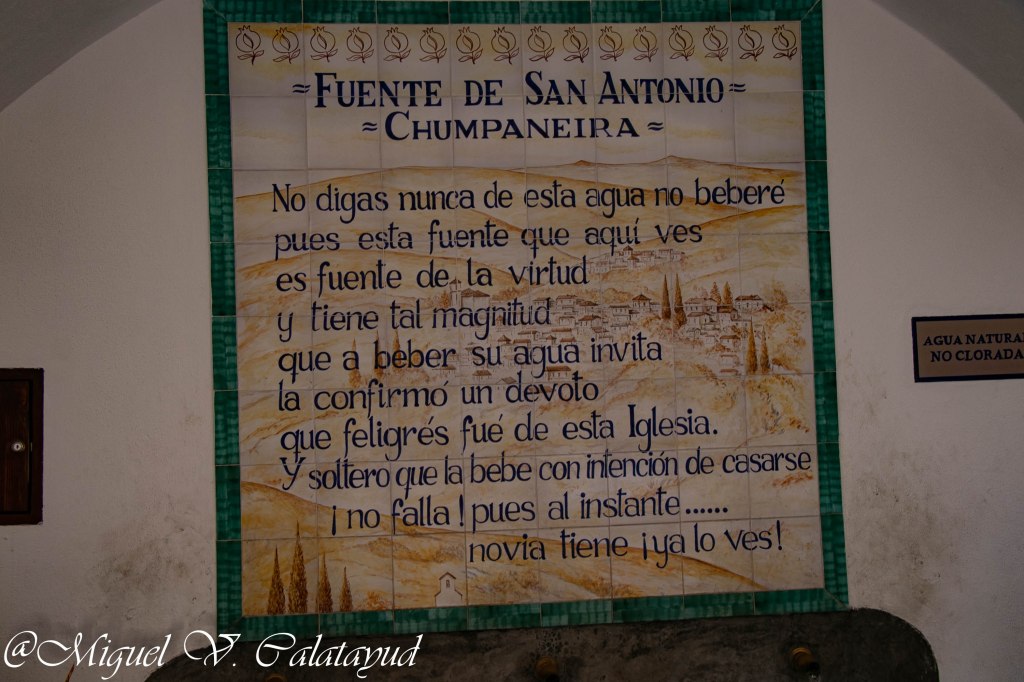 ≈FUENTE DE SAN ANTONIO≈
≈CHUMPANEIRA≈
No digas nunca de esta agua no beberé
pues esta fuente que aquí ves
es fuente de la virtud
y tiene tal magnitud
que a beber su agua invita
la confirmó un devoto
que feligrés fué de esta Iglesia.
Y soltero que la bebe con intención de casarse
¡no falla! pues al instante......
novia tiene ¡ya lo ves!
AGUA NATURA
NO CLORADA
@Miguel V. Calatayud